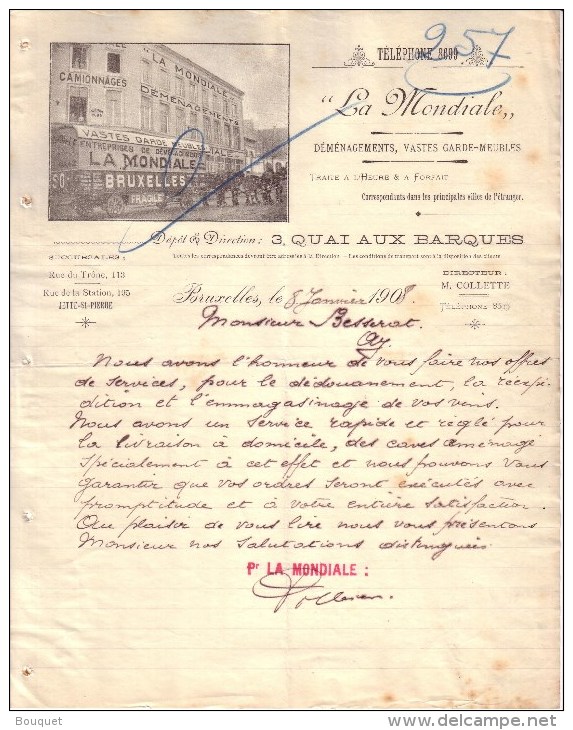 957
TÉLÉPHONE 8699
"La Mondiale„
DÉMÉNAGEMENTS, VASTES GARDE-MEUBLES
TRAITE A L'HEURE & A FORFAIT
Correspondants dans les principales villes de l'étranger.
CAMIONNAGES
"LA MONDIALE
DÉMÉNAGEMENTS
VASTES GARDE MEUBLES
ENTREPRISES DE DÉMÉNAGEMENTS
LA MONDIALE
BRUXELLES
FRAGILE
Dépôt & Direction : 3, QUAI AUX BARQUES
Toutes les correspondances devront être adressées à la Direction. — Les conditions de transport sont à la disposition des clients
SUCCURSALES :
Rue du Trône, 113
Rue de la Station, 195
JETTE-St-PIERRE
DIRECTEUR :
M. COLLETTE
TÉLÉPHONE
Bruxelles, le 8 Janvier 1908.
Monsieur Besserat,
Ay.
Nous avons l'honneur de vous faire nos offres
de services, pour le dédouanement, la réexpé
dition et l'emmagasinage de vos vins.
Nous avons un service rapide et réglé pour
la livraison à domicile, des caves aménagé
spécialement à cet effet et nous pouvons vous
garantir que vos ordres seront exécutés avec
promptitude et à votre entière satisfaction.
Au plaisir de vous lire nous vous présentons
Monsieur nos salutations distinguées
Pr LA MONDIALE :
Bouquet
delcampe.net